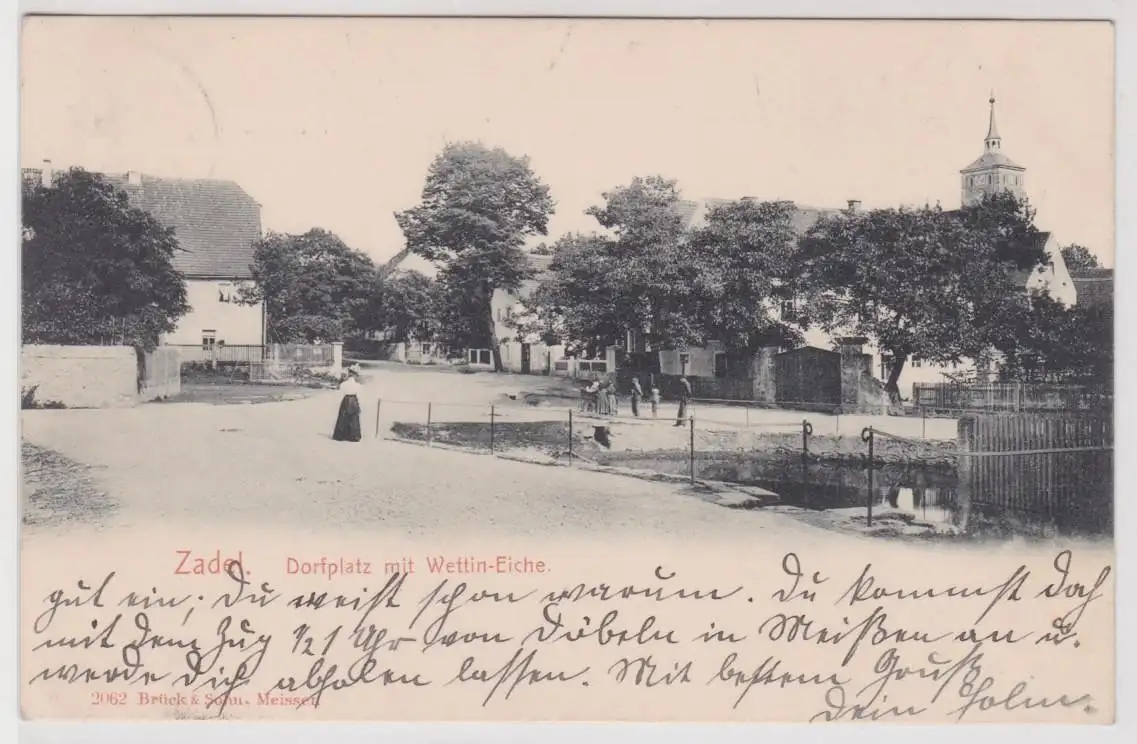 Zadel. Dorfplatz mit Wettin-Eiche.
gut ein; Du weist schon warum. Du kommst doch
mit dem Zug 1/2 1 Uhr von Döbeln in Meißen an u.
werde Dich abholen lassen. Mit bestem Gruß
Dein
2062 Brück & Sohn, Meissen